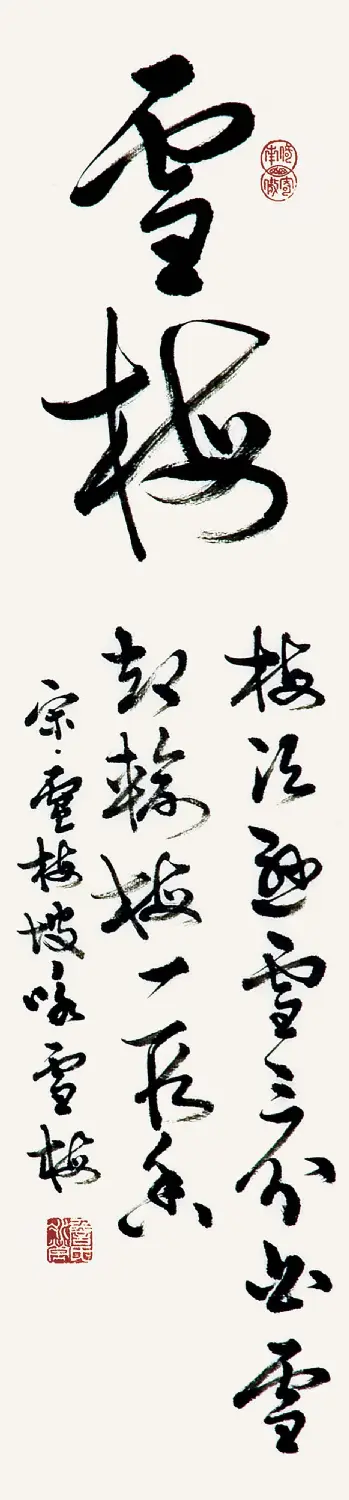 雪梅
梅須遜雪三分白雪
却輸梅一段香
宋·盧梅坡咏雪梅